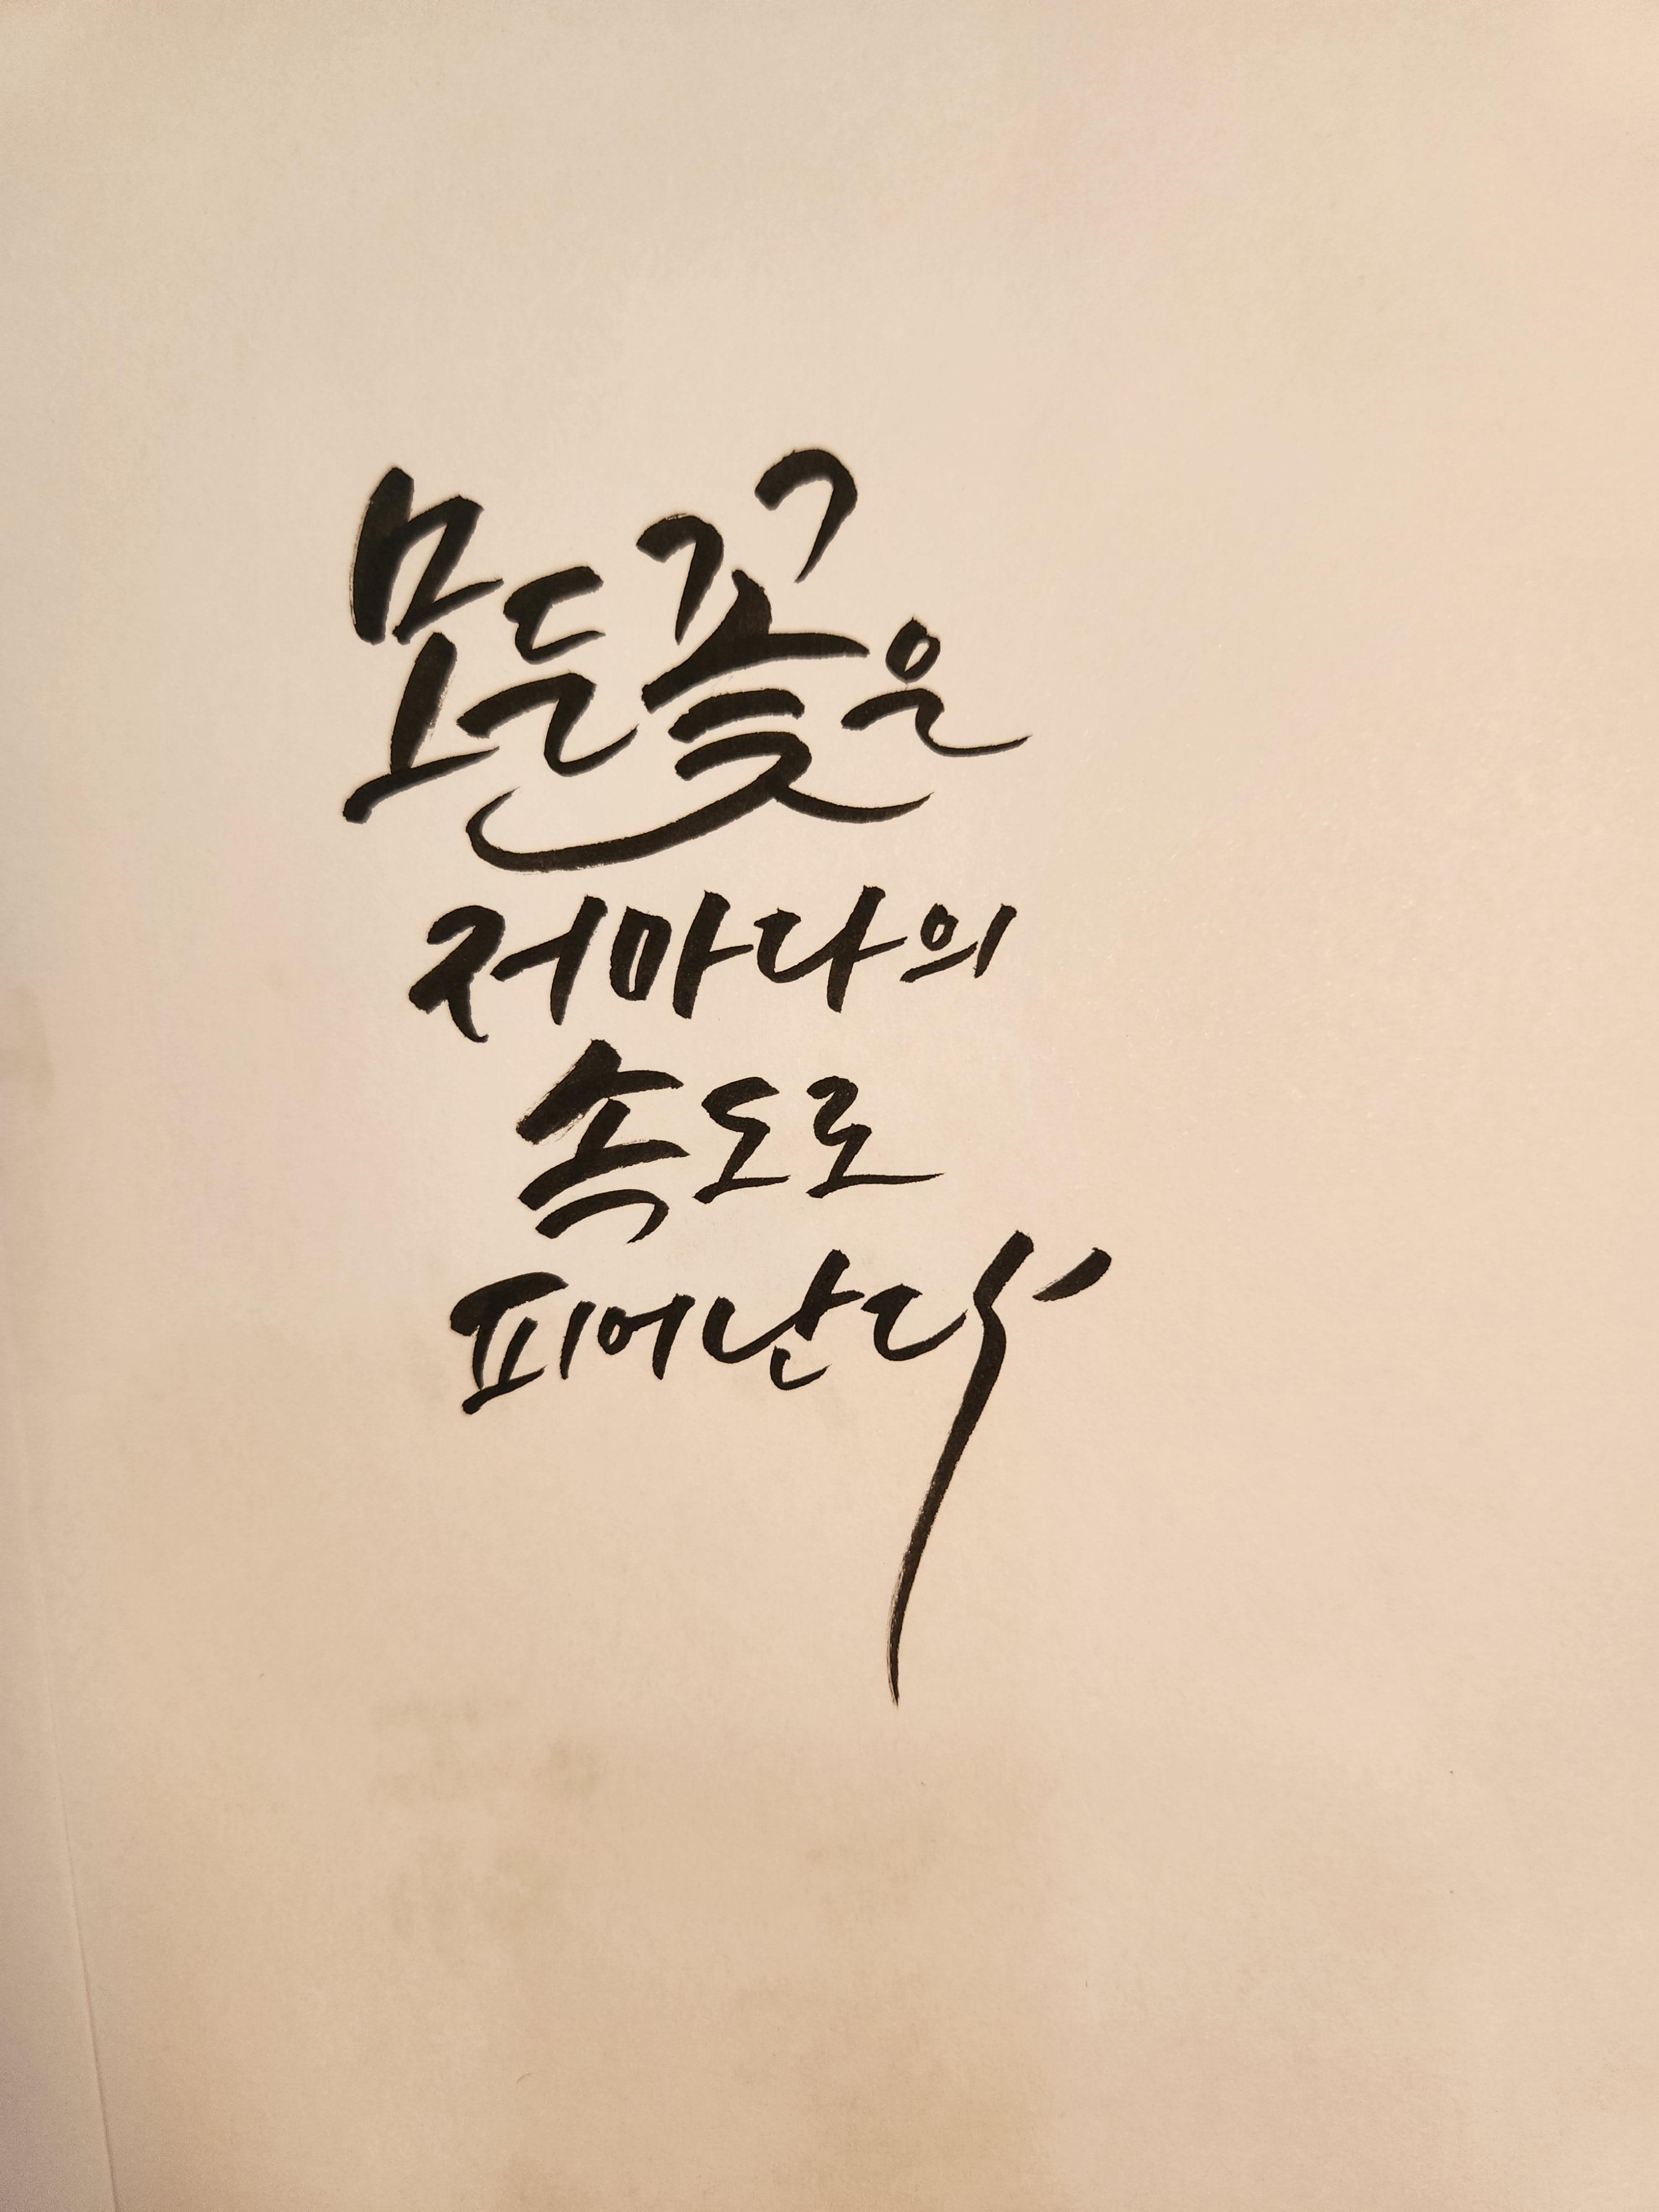 모든 꽃은
저마다의
속도로
피어난다